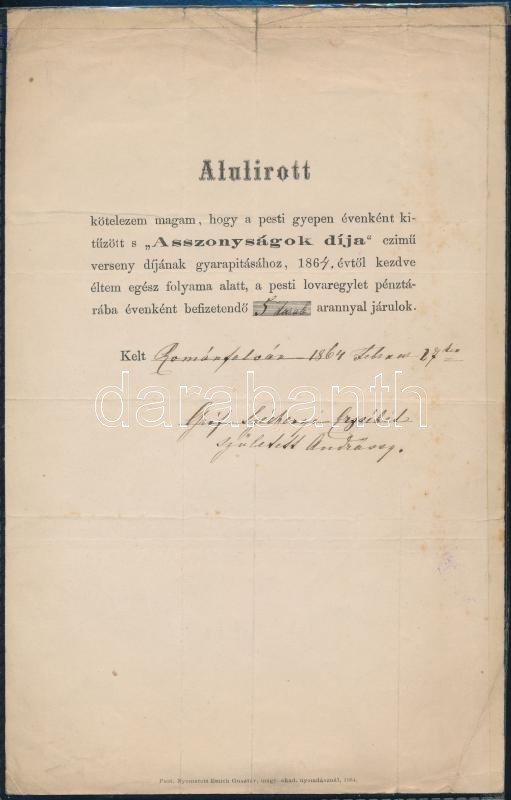 Alulirott
kötelezem magam, hogy a pesti gyepen évenként ki-
tűzött s „Asszonyságok díja“ czimű
verseny díjának gyarapitásához, 1864. évtől kezdve
éltem egész folyama alatt, a pesti lovaregylet pénztá-
rába évenként befizetendő 5 darab arannyal járulok.
Kelt Románfalván 1864 Febru 27
darabanth
Gróf Széchenyi Erzsébet
született Andrássy.
Pest, Nyomatott Emich Gusztáv, magy. akad. nyomdásznál, 1864.